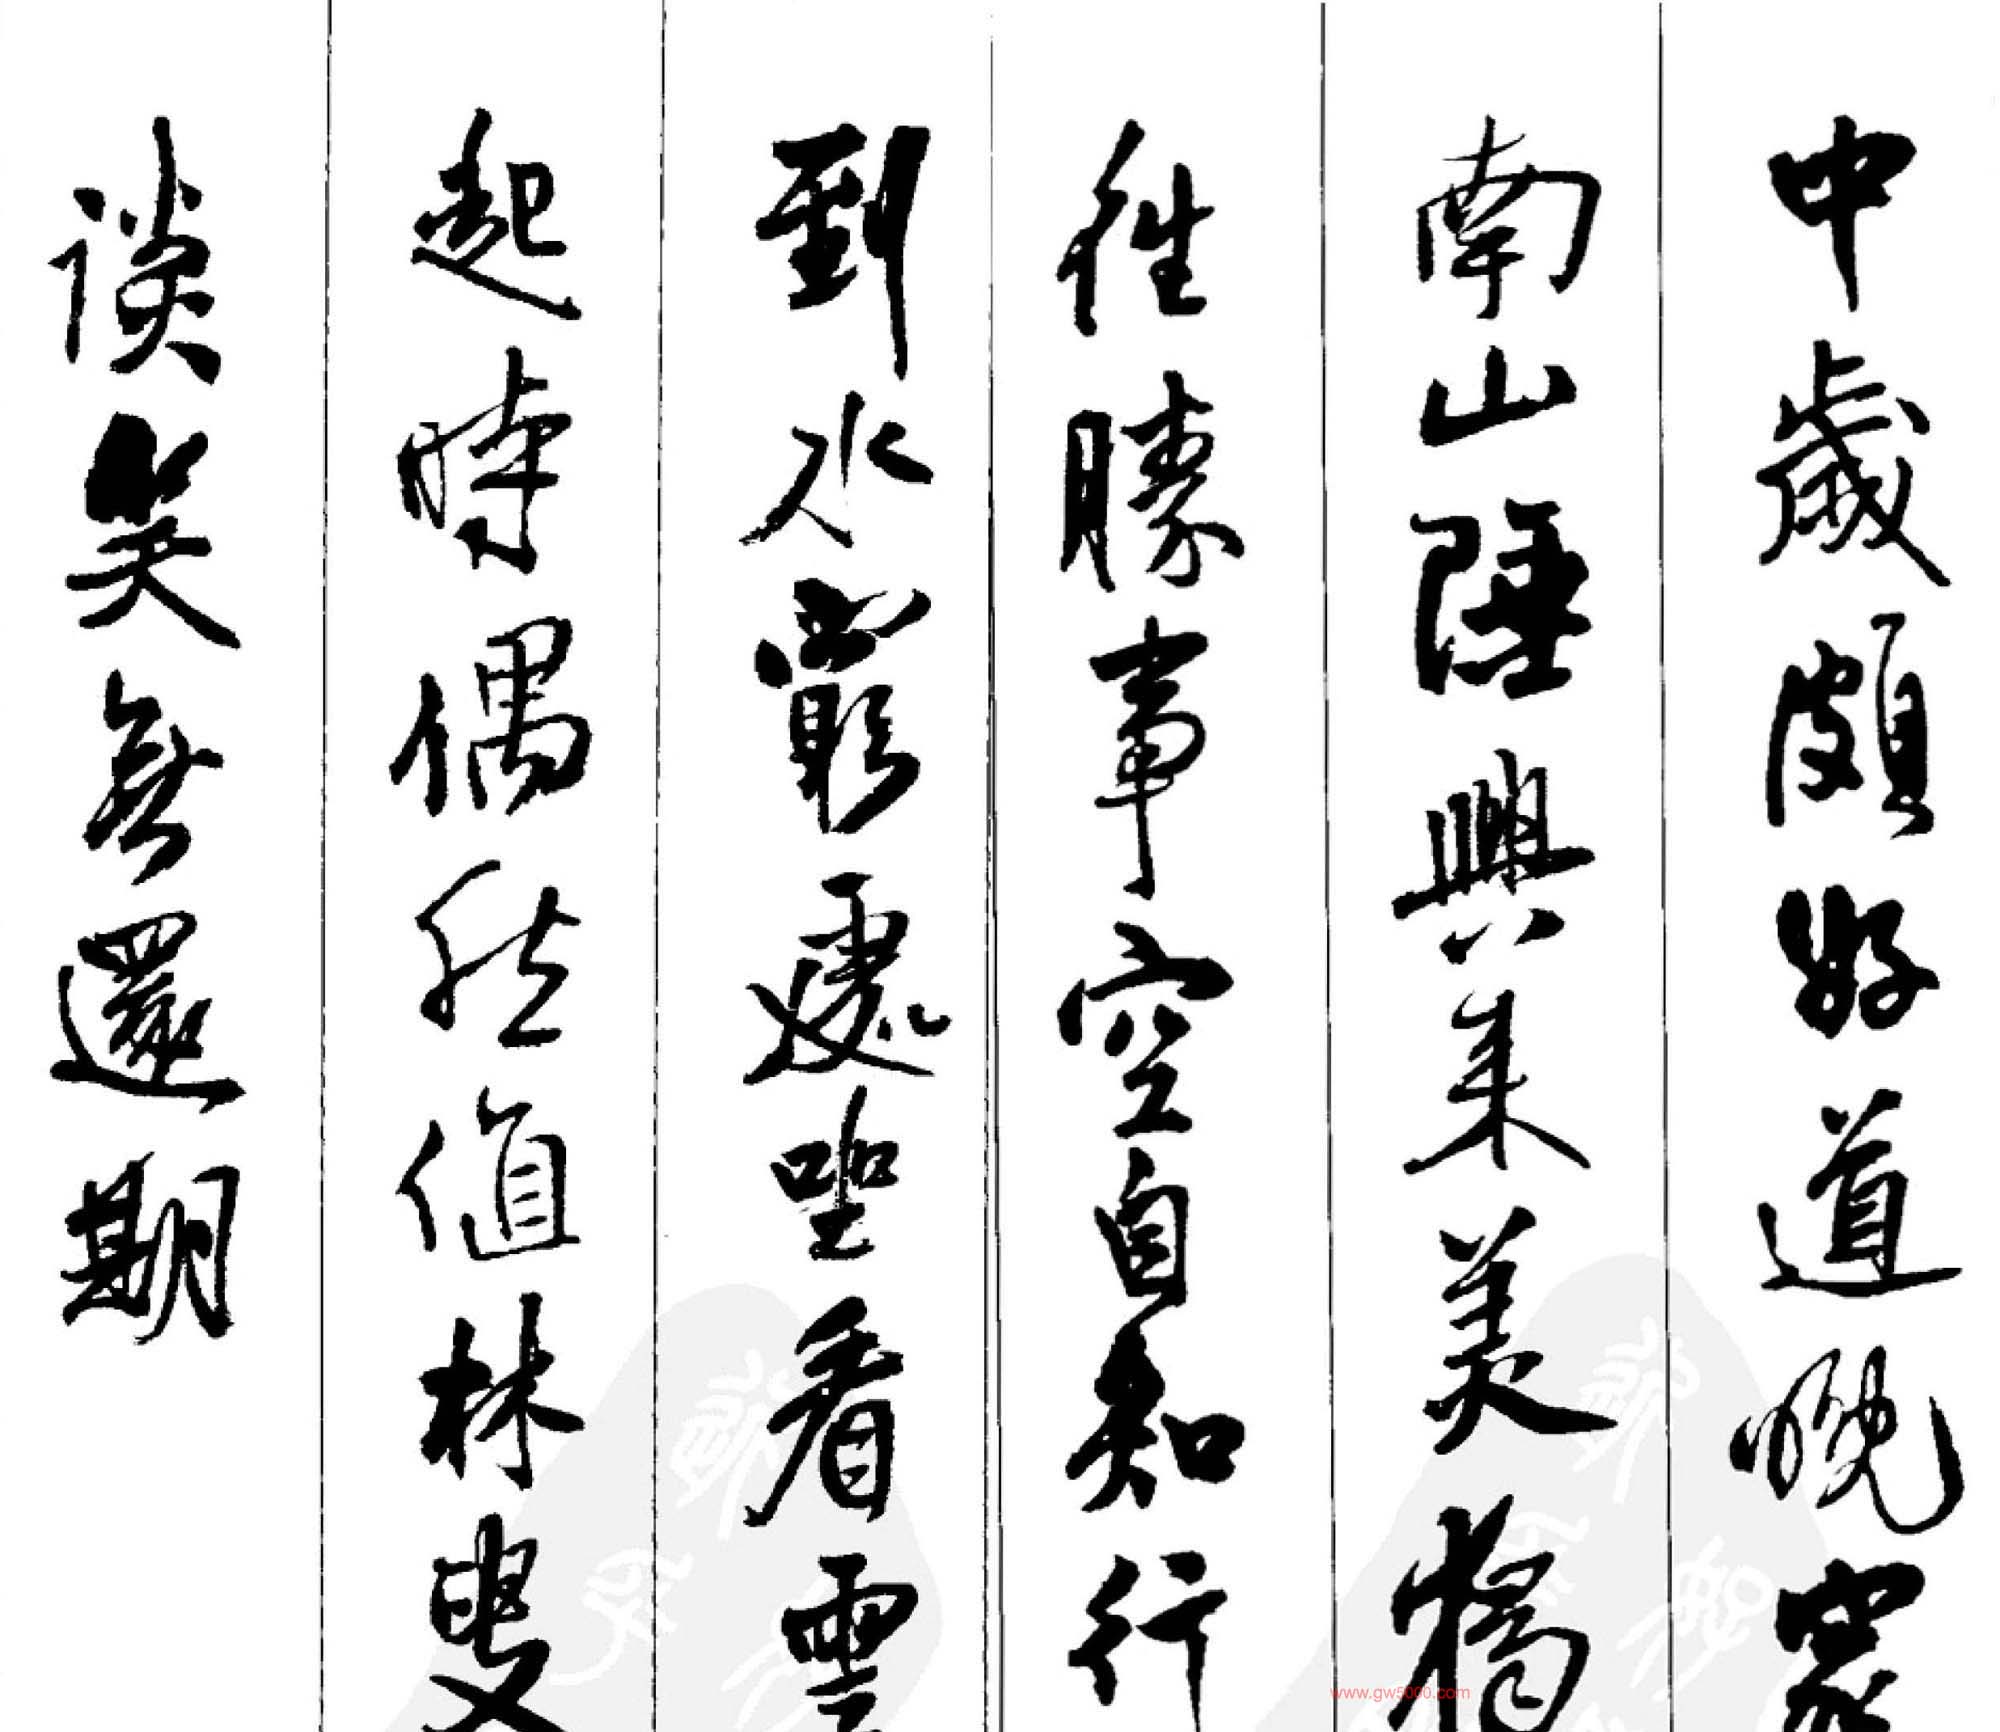 中歲頗好道晚家
南山陲興來美獨
往勝事空自知行
到水窮處坐看雲
起時偶然值林叟
談笑無還期
www.gw5000.com